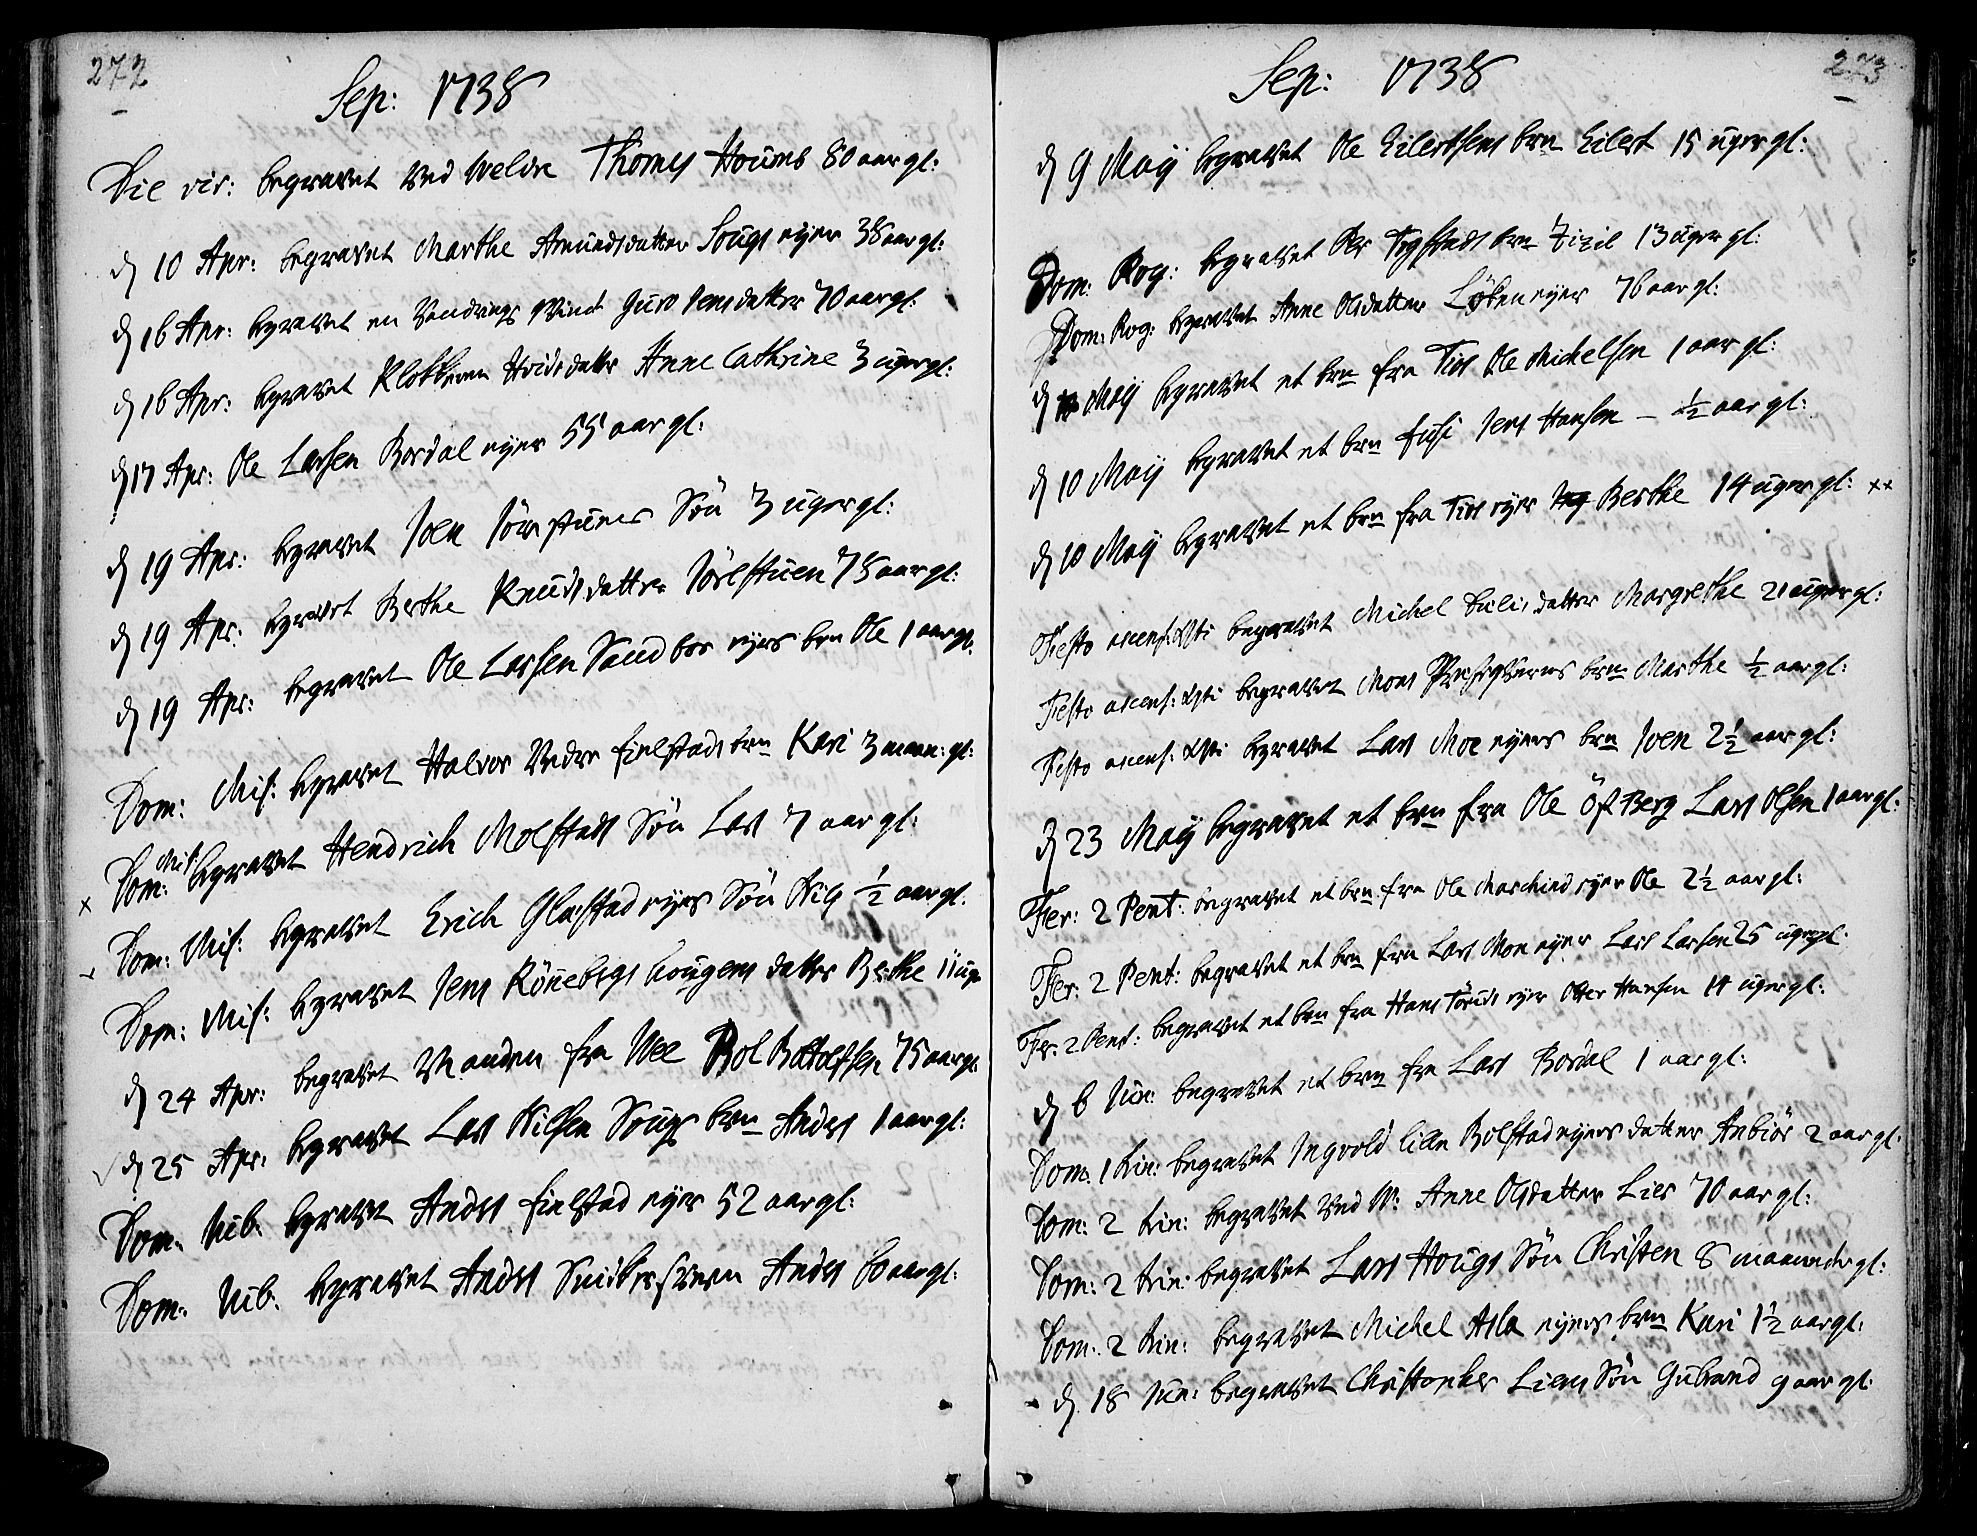 272
Sep: 1738
Die vir: begravet ved Weldre Thomes Houms 80 aar gl:
d 10 Apr: begravet Marthe Amundsdatter Sougs eyer 38 aar gl:
d 16 Apr: begravet en Vandrings Qvinde Guro Jensdatter 70 aar gl:
d 16 Apr: begravet Klokkeren datter Anne Cathrine 3 uger gl:
d 17 Apr: Ole Larsen Bordal eyer 55 aar gl:
d 19 Apr: begravet Joen Jörstuens Sön 3 uger gl:
d 19 Apr: begravet Berthe Knudsdatter Jörlstuen 78 aar gl:
d 19 Apr: begravet Ole Larsen Sandboe eyers brn Ole 1 aar gl:
Dom: Mis: begravet Halvor Vedre Fielstads brn Kari 3 maan: gl:
x Dom: Mis: begravet Hendrich Molstads Sön Lars 7 aar gl:
Dom: Mis: begravet Erich Glæstad eyers Sön Nils ½ aar gl.
Dom: Mis: begravet Jens Rönebergs hougens datter Berthe 11 uge
d 24 Apr: begravet Manden fra Wee Bottolfsen 75 aar gl.
d 25 Apr: begravet Lars Nilsen Sougs brn Anders 1 aar gl:
Dom: Jub: begravet Anders Fielstad eyer 52 aar gl:
Dom: Jub: begravet Anders Anders 60 aar gl:
273
Sep: 1738
d 9 Maij begravet Ole Eilertsens brn Eilert 15 uger gl:
Dom: Rog: begravet Per brn Zizil 13 uger gl:
Dom: Rog: begravet Anne Olsdatter Löken eyer 76 aar gl:
d Maij begravet et brn fra Ole Michelsen 1 aar gl:
d 10 Maij begravet et brn Jens Hansen – ½ aar gl:
d 10 Maij begravet et brn fra eyer Berthe 14 uger gl: xx
Festo ascens: Xsti begravet Michel datter Margrethe 21 uger gl:
Festo ascens: Xsti begravet Mons brn Marthe ½ aar gl:
Festo ascens: Xsti begravet Lars Moe eyers brn Joen 2½ aar gl:
d 23 Maij begravet et brn fra Ole Öst Berg Lars Olsen 1 aar gl:
Fer: 2 Pent: begravet et brn fra Ole eyer Ole 2½ aar gl:
Fer: 2 Pent: begravet et brn fra Lars Moe eyer Lars Larsen 25 uger gl:
Fer: 2 Pent: begravet et brn fra Hans eyer Hansen 14 uger gl:
d 6 Jun: begravet et brn fra Lars Bordal 1 aar gl:
Dom: 1 trin: begravet Ingvold lille Bolstad eyers datter Anbiör 2 aar gl:
Dom: 2 trin: begravet ved W: Anne Olsdatter Lier 70 aar gl:
Dom: 2 trin: begravet Lars Hougs Sön Christen 8 maaneder gl:
Dom: 2 trin: begravet Michel Asla eyers brn Kari 1½ aar gl:
d 18 Jun: begravet Christopher Liens Sön Gulbrand 9 aar gl: